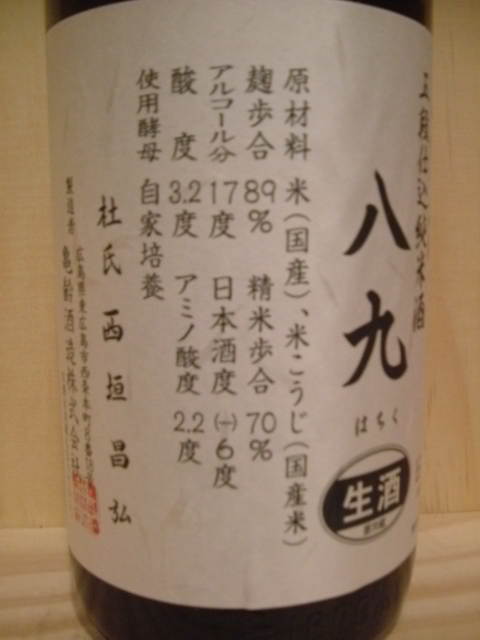 五段仕込純米酒
八九
はちく
生酒
原材料 米(国産)、米こうじ(国産米)
麹歩合 89% 精米歩合 70%
アルコール分 17度 日本酒度 (+)6度
酸度 3.2度 アミノ酸度 2.2度
使用酵母 自家培養
杜氏 西垣昌弘
製造者 亀齢酒造株式会社
広島県東広島市西条本町8番18号